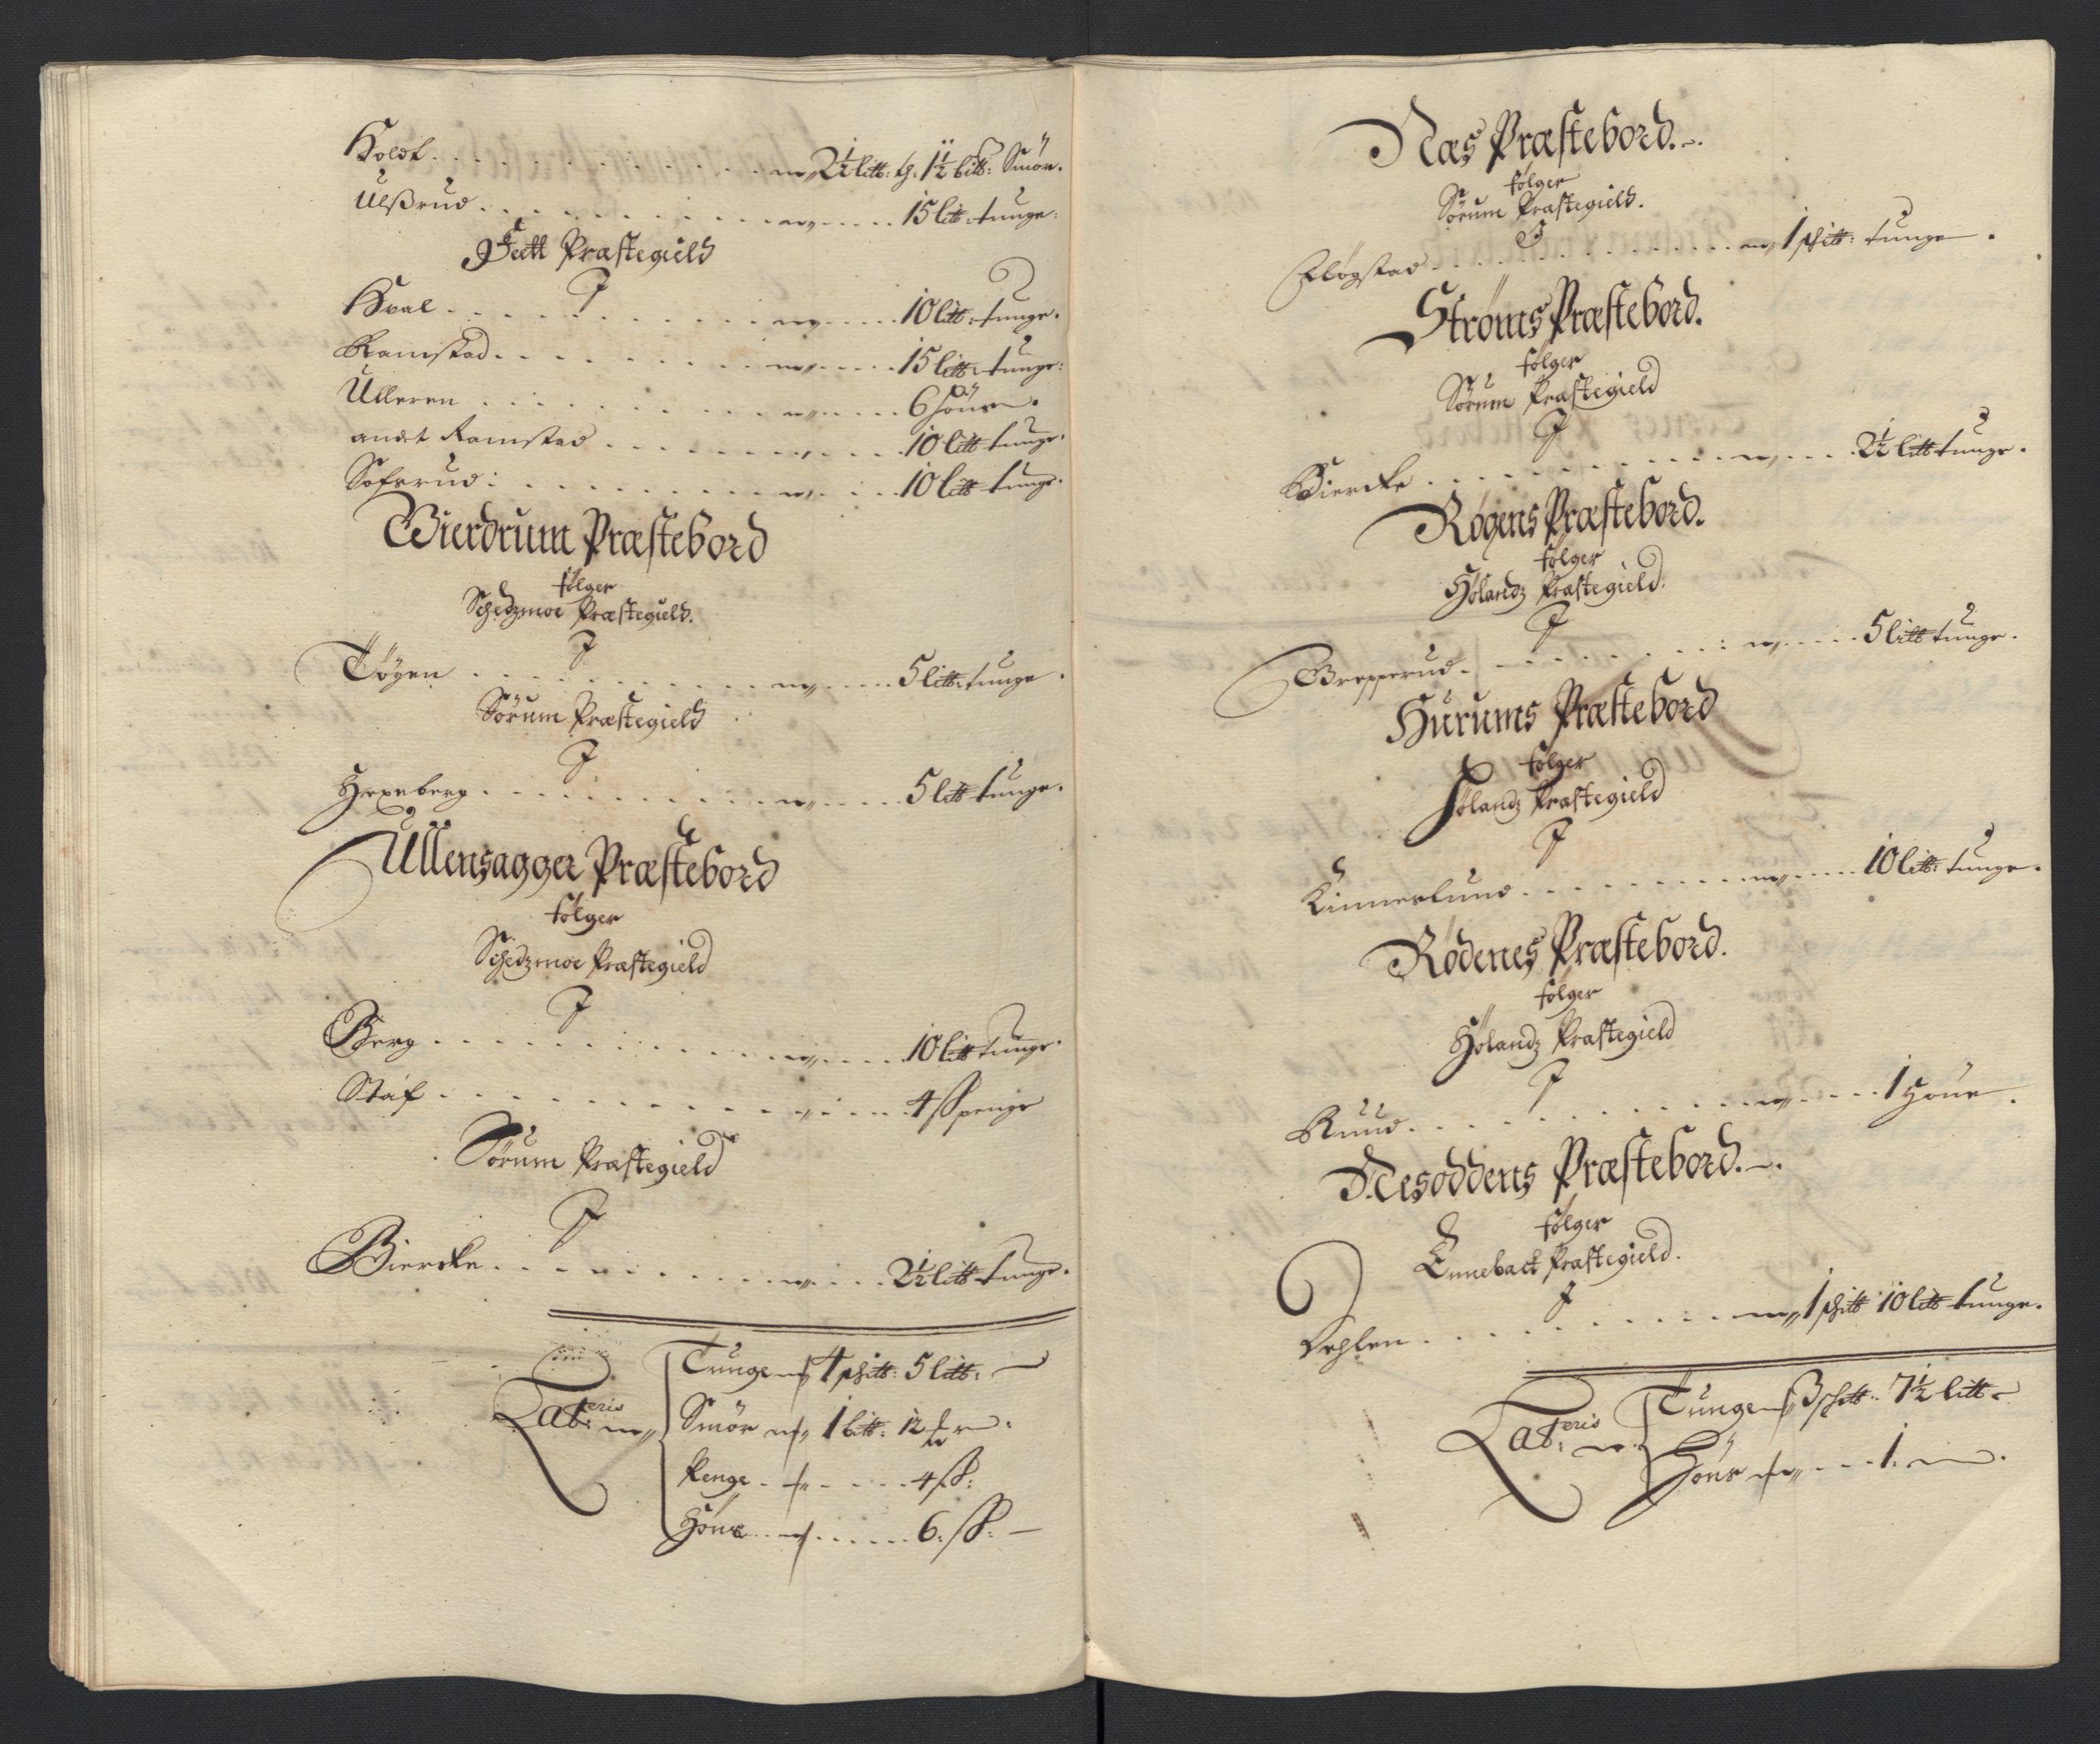 Holdt . . . . . . . 2½ litt: & 1½ bitt: Smör.
Ulßrud . . . . . . . 15 litt: tunge:
Fett Præstegield
J
Hval . . . . . . . 10 litt: tunge.
Ramstad . . . . . . . 15 litt: tunge:
Ulleren . . . . . . . 6 höns.
andet Ramstad . . . . . . . 10 litt tunge.
Sofsrud: . . . . . . . 10 litt tunge.
Gierdrum Præstebord
følger
Schedzmoe Præstegield.
J
Töyen . . . . . . . 5 litt: tunge.
Sörum Præstegield
J
Hexeberg . . . . . . . 5 litt tunge.
Üllensagger Præstebord
følger
Schedzmoe Præstegield
J
Berg . . . . . . . 10 litt tunge.
Staf . . . . . . . 4 ß penge
Sörum Præstegield
J
Biercke . . . . . . . 2½ litt tunge.
Tunge 4 schitt: 5 litt:
Lat:eris Smör 1 bitt: 12
Penge . . . . 4 ß:
Höns . . . . 6. ß:
Næs Præstebord.
følger
Sörum Præstegield.
J
Flögstad . . . . . . . 1 schitt: tunge.
Ströms Præstebord.
følger
Sörum Præstegield
J
Biercke . . . . . . . 2½ litt tunge.
Røgens Præstebord.
følger
Hölandz Præstegield.
J
Grepperud . . . . . . . 5 litt tunge.
Hurums Præstebord
følger
Hölandz Præstegield
J
Kinnerlund . . . . . . . 10 litt: tunge.
Rødenes Præstebord.
følger
Hölandz Præstegield
J
Ruud . . . . . . . 1 Höns.
Nesoddens Præstebord.
følger
Ennebact Præstegield.
J
Vehlen . . . . . . . 1 schitt 10 litt tunge.
Tunge 3 schitt: 7½ litt
Lat:eris
Höns . . . 1.